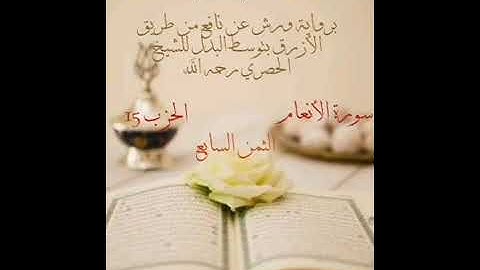 برواية ورش عن نافع من طريق
الأزرق بتوسط البدل للشيخ
الحصري رحمه الله
سورة الأنعام الحزب 15
الثمن السابع